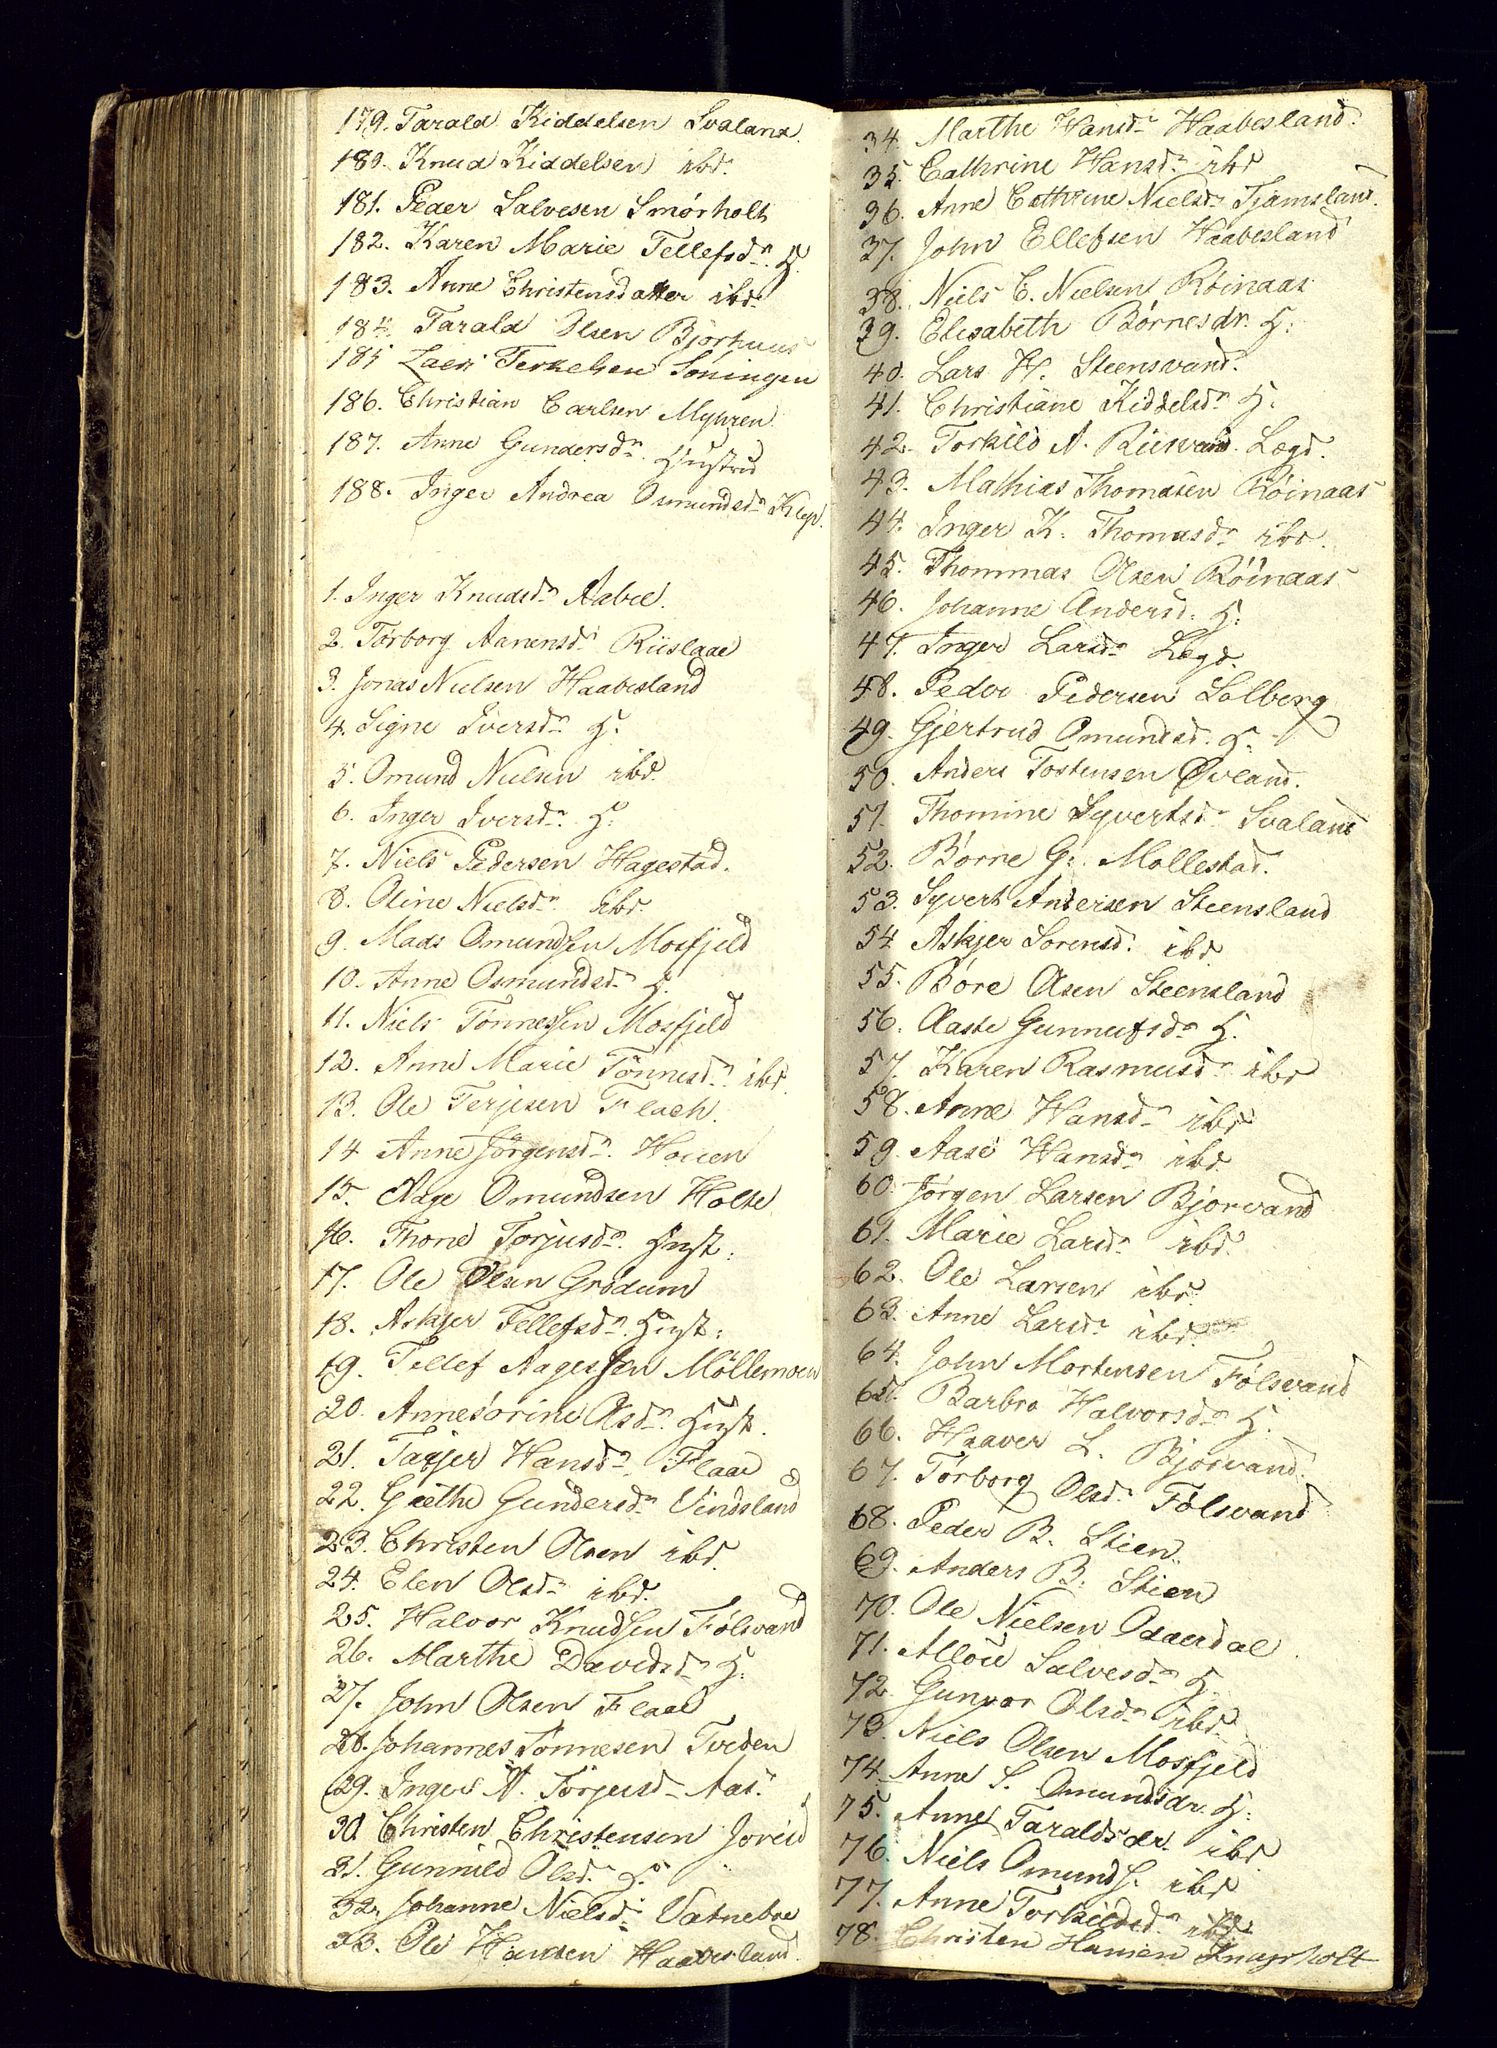 179. Tarald Kiddelsen Svaland.
180. Knud Kiddelsen ibd.
181. Peder Salvesen Smørholt
182. Karen Marie Tellefsdn. H.
183. Anne Christensdatter ibd.
184. Tarald Olsen Bjorhuus
185 Terkelsen
186. Christian Carlsen Myhren
187. Anne Gundersdn. Hustrud
188. Inger Andrea Osmundsdn Klep.
1. Inger Knudsdn Aaboe.
2. Torborg Aanensdn Riislaae
3. Jonas Nielsen Haabesland
4. Signe Iversdn H.
5. Omund Nielsen ibd.
6. Inger Iversdn. H.
7. Niels Pedersen Hagestad.
8. Oline Nielsdn ibd.
9. Mads Omundsen Mosfjeld
10. Anne Osmundsdn H.
11. Niels Tønnessen Mosfjeld
12. Anne Marie Tönnesdn. ibd.
13. Ole Terjesen Flaeh.
14 Anne Jørgensdn. Houen
15. Aage Omundsen Holte
16. Thone Torjusdn. Hust.
17. Ole Olsen Grødum
18. Askjer Tellefsdn. Hust:
19. Tellef Aagessen Möllemoen
20. Annesørine Olsdn. Hust.
21. Taajer Hansdn. Flaae
22. Grethe Gundersdn Vindsland
23. Christen Olsen ibd.
24. Elen Olsdn ibd.
25. Halvor Knudsen Følsvand
26. Marthe Davidsdn H:
27. John Olsen Flaae
28. Johannes Tønnesen Tveden
29. Inger N. Törjusd- Aas.
30. Christen Christensen Joreid
31. Gunnild Olsd. H.
32. Johanne Nielsd. Vatneboe
33. Ole Hansen Haabesland.
34. Marthe Hansdn Haabesland.
35. Cathrine Hansdn ibd
36. Anne Cathrine Nielsdn Tjamsland.
37. John Ellefsen Haabesland
38. Niels C. Nielsen Røinaas
39. Elisabeth Børnesdr. H:
40. Lars H. Steensvand.
41. Christiane Kiddelsdn H.
42. Torkild A. Riisvand. Lægd.
43. Mathias Thomasen Røinaas
44. Inger K. Thomasdn ibd.
45. Thommas Olsen Röinaas
46. Johanne Andersd. H:
47. Inger Larsdn Lægd.
48. Peder Pedersen Solberg
49. Gjertrud Omundsd. H.
50. Anders Tostensen Øvland.
51. Thomine Syvertsdn Svaland
52. Børne G. Mollestad.
53. Syvert Andersen Steensland
54. Askjer Sorensd. ibd
55. Børe Olsen Steensland
56. Aaste Gunnufsdn H.
57. Karen Rasmusdn ibd
58. Anne Hansdn ibd
59. Aase Hansdn ibd
60. Jørgen Larsen Bjorvand
61. Marie Larsdn ibd.
62. Ole Larsen ibd.
63. Anne Larsdn ibd.
64. John Mortensen Følsvand
65. Barbra Halvorsdn H.
66. Haaver L. Bjorvand.
67. Törborg Olsdn Følsvand
68. Peder B. Stien.
69. Anders B. Stien
70. Ole Nielsen Oddersdal
71. Salvesdn H
72. Gunvor Olsdn ibd.
73. Niels Olsen Mosfjeld
74. Anne S. Omundsdr. H.
75. Anne Taraldsdr. ibd.
76. Niels Omunds. ibd
77. Anne Torkildsdn ibd.
78. Christen Hansen Knapholt